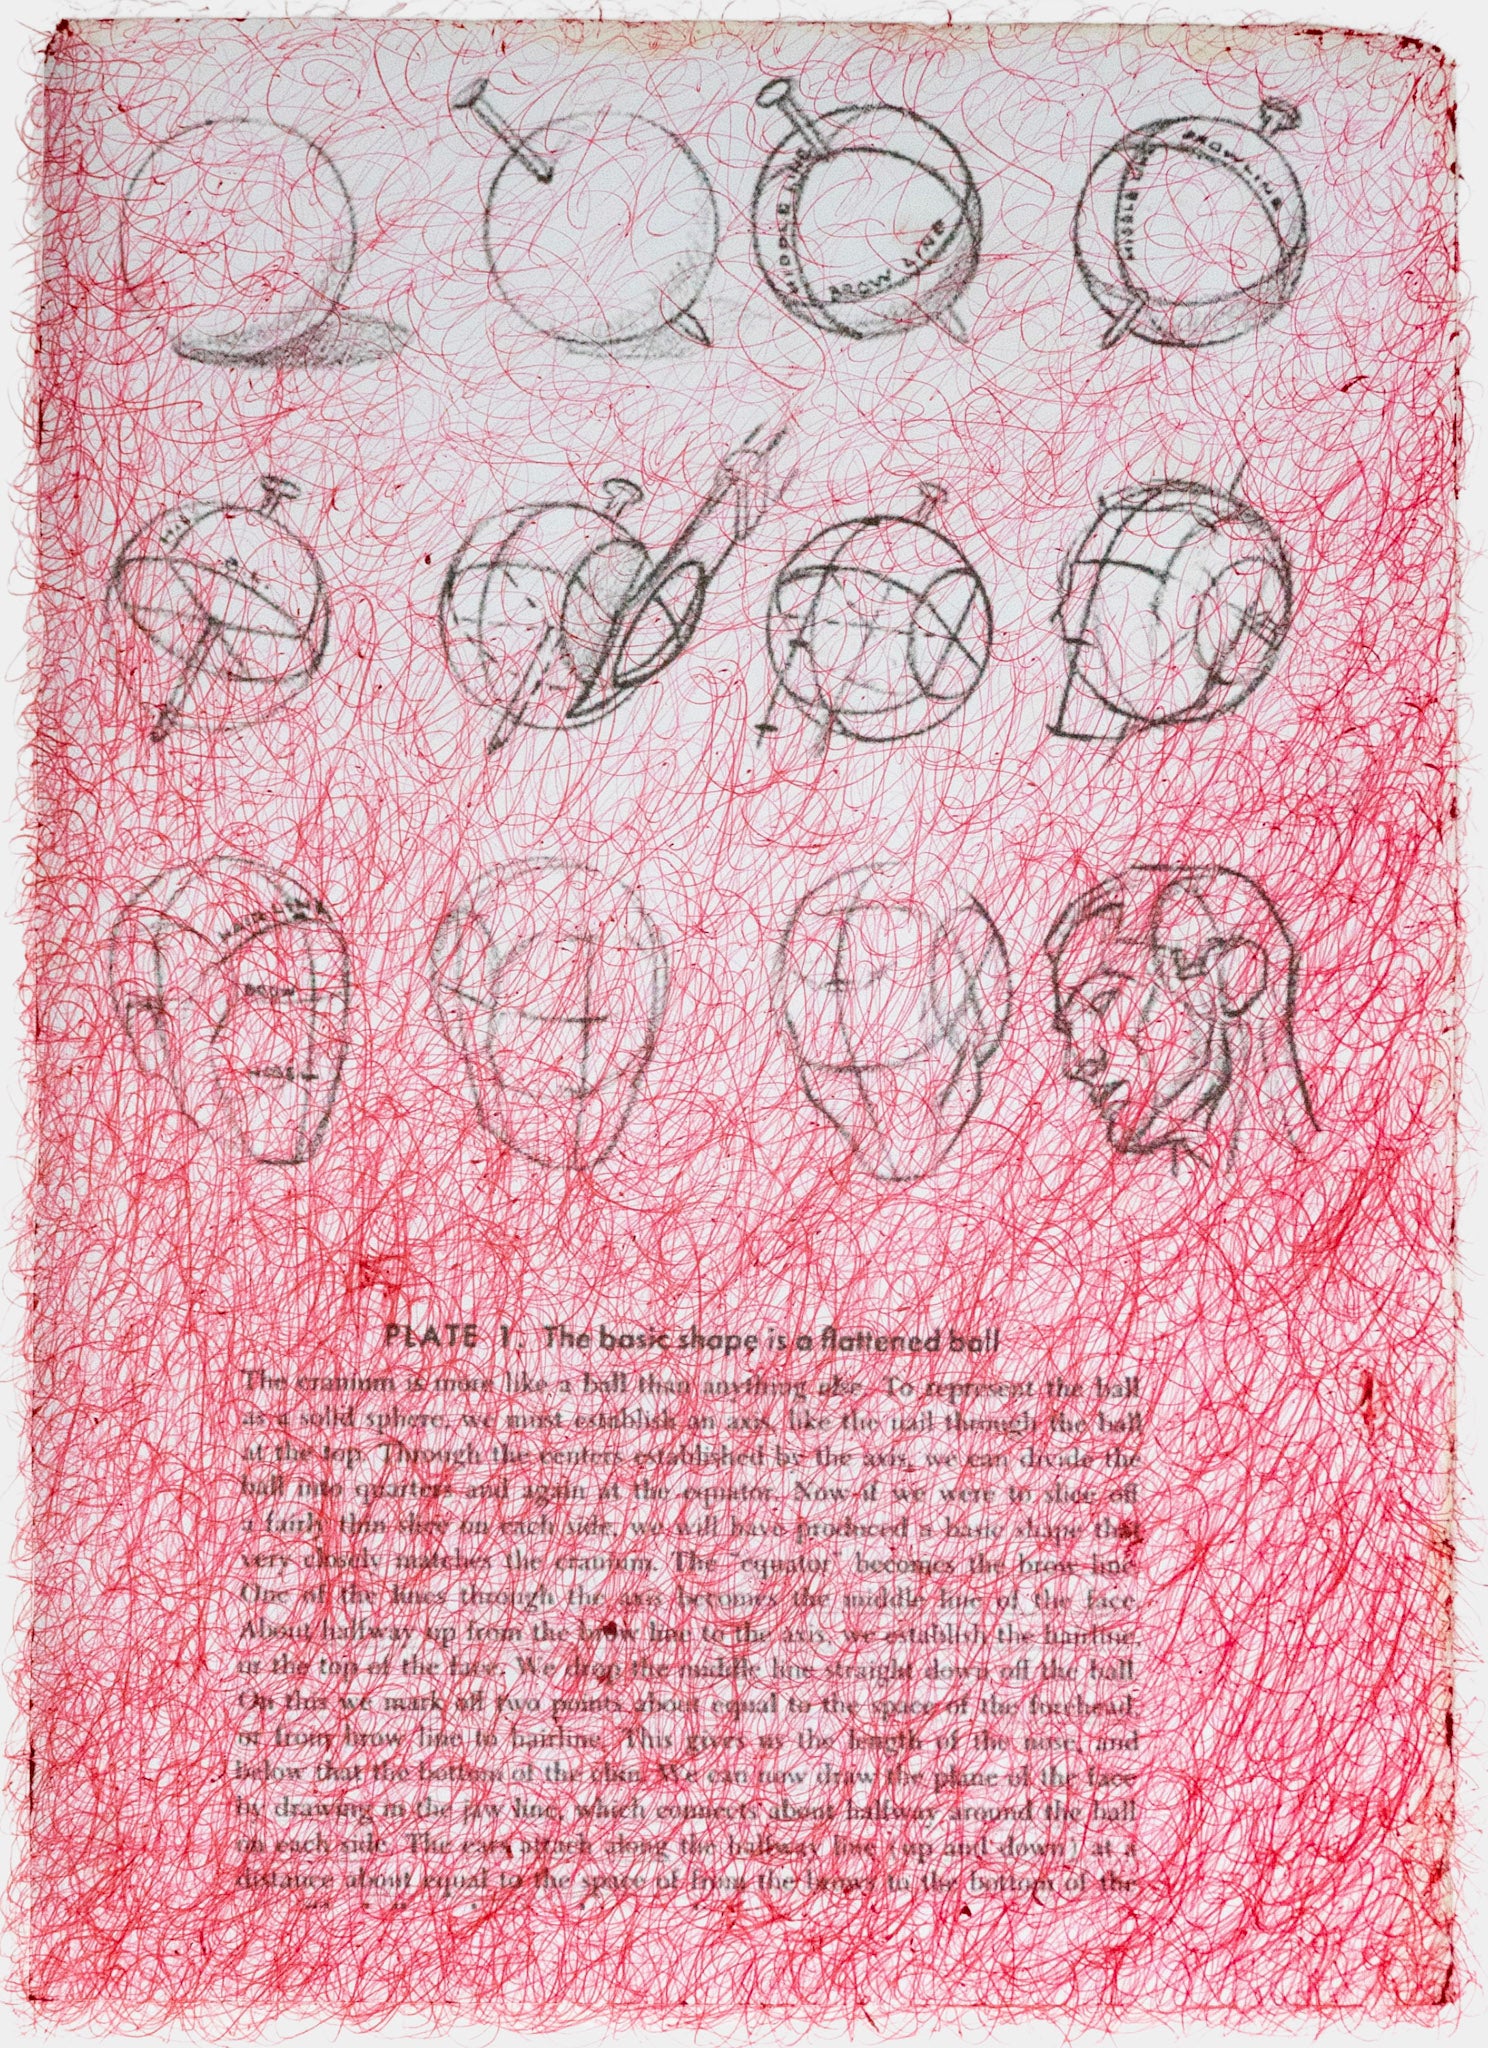 MIDDLE LINE
BROW LINE
MIDDLE
BROW LINE
HAIR LINE
BROW
NOSE
PLATE 1. The basic shape is a flattened ball
The cranium is more like a ball than anything else. To represent the ball
as a solid sphere, we must establish an axis, like the nail through the ball
at the top. Through the centers established by the axis, we can divide the
ball into quarters and again at the equator. Now if we were to slice off
a fairly thin slice on each side, we will have produced a basic shape that
very closely matches the cranium. The "equator" becomes the brow line
One of the lines through the axis becomes the middle line of the face.
About halfway up from the brow line to the axis, we establish the hairline,
or the top of the face. We drop the middle line straight down off the ball
On this we mark off two points about equal to the space of the forehead,
or from brow line to hairline. This gives us the length of the nose, and
below that the bottom of the chin. We can now draw the plane of the face
by drawing in the jaw line, which connects about halfway around the ball
on each side. The ears attach along the halfway line (up and down) at a
distance about equal to the space of from the brows to the bottom of the